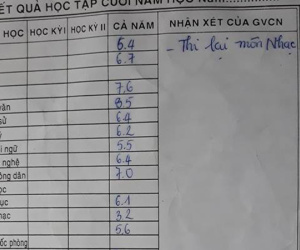 ẾT QUẢ HỌC TẬP CUỐI NĂM HỌC
HỌC HỌC KỲ I HỌC KỲ II CẢ NĂM NHẬN XÉT CỦA GVCN
6.4 - Thi lại môn Nhạc
6.7
7.6
văn 8.5
sử 6.4
ý 6.2
i ngữ 5.5
nghệ 6.4
ông dân 7.0
ọc
ục 6.1
hạc 3.2
5.6
ốc phòng